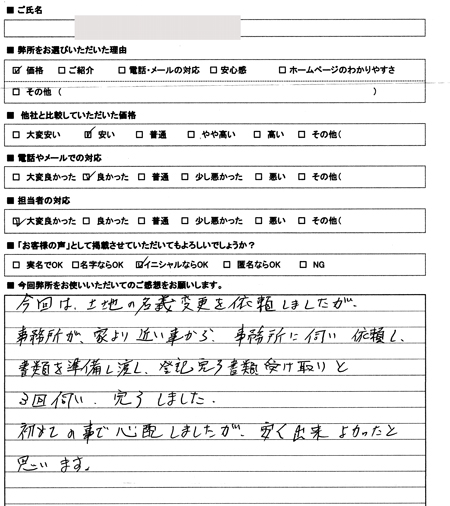 ■ ご氏名
■ 弊所をお選びいただいた理由
☑ 価格 □ご紹介 □ 電話・メールの対応 □ 安心感 □ ホームページのわかりやすさ
□ その他 ( )
■ 他社と比較していただいた価格
□ 大変安い ☑ 安い □ 普通 □ やや高い □ 高い □ その他(
■ 電話やメールでの対応
□ 大変良かった ☑ 良かった □ 普通 □ 少し悪かった □ 悪い □ その他(
■ 担当者の対応
☑大変良かった □ 良かった □ 普通 □ 少し悪かった □ 悪い □ その他(
■ 「お客様の声」として掲載させていただいてもよろしいでしょうか？
□ 実名でOK □名字ならOK ☑イニシャルならOK □ 匿名ならOK □ NG
■ 今回弊所をお使いいただいてのご感想をお願いします。
今回は、土地の名義変更を依頼しましたが、
事務所が、家より近い事から、事務所に伺い 依頼し、
書類を準備し渡し、登記完了書類受け取りと
3回伺い、完了しました。
初めての事で心配しましたが、安く出来 よかったと
思います。